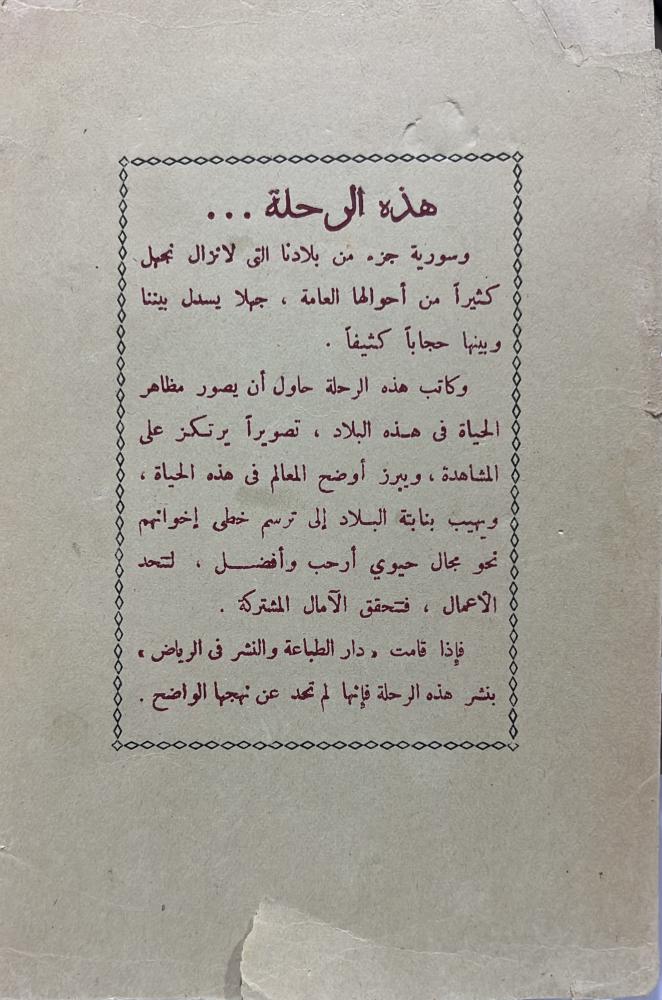 هذه الرحلة ...
وسورية جزء من بلادنا التى لانزال نجهل
كثيراً من أحوالها العامة ، جهلا يسدل بيننا
وبينها حجاباً كثيفاً .
وكاتب هذه الرحلة حاول أن يصور مظاهر
الحياة فى هـذه البلاد ، تصويراً يرتـكـز على
المشاهدة ، ويبرز أوضح المعالم فى هذه الحياة ،
ويهيب بنابتة البـلاد إلى ترسم خطى إخوانهم
نحو مجال حيوي أرحب وأفضـــل ، لتتحد
الأعمال ، فتتحقق الآمال المشتركة .
فإذا قامت « دار الطباعة والنشر فى الرياض »
بنشر هذه الرحلة فإنها لم تحد عن نهجها الواضح .